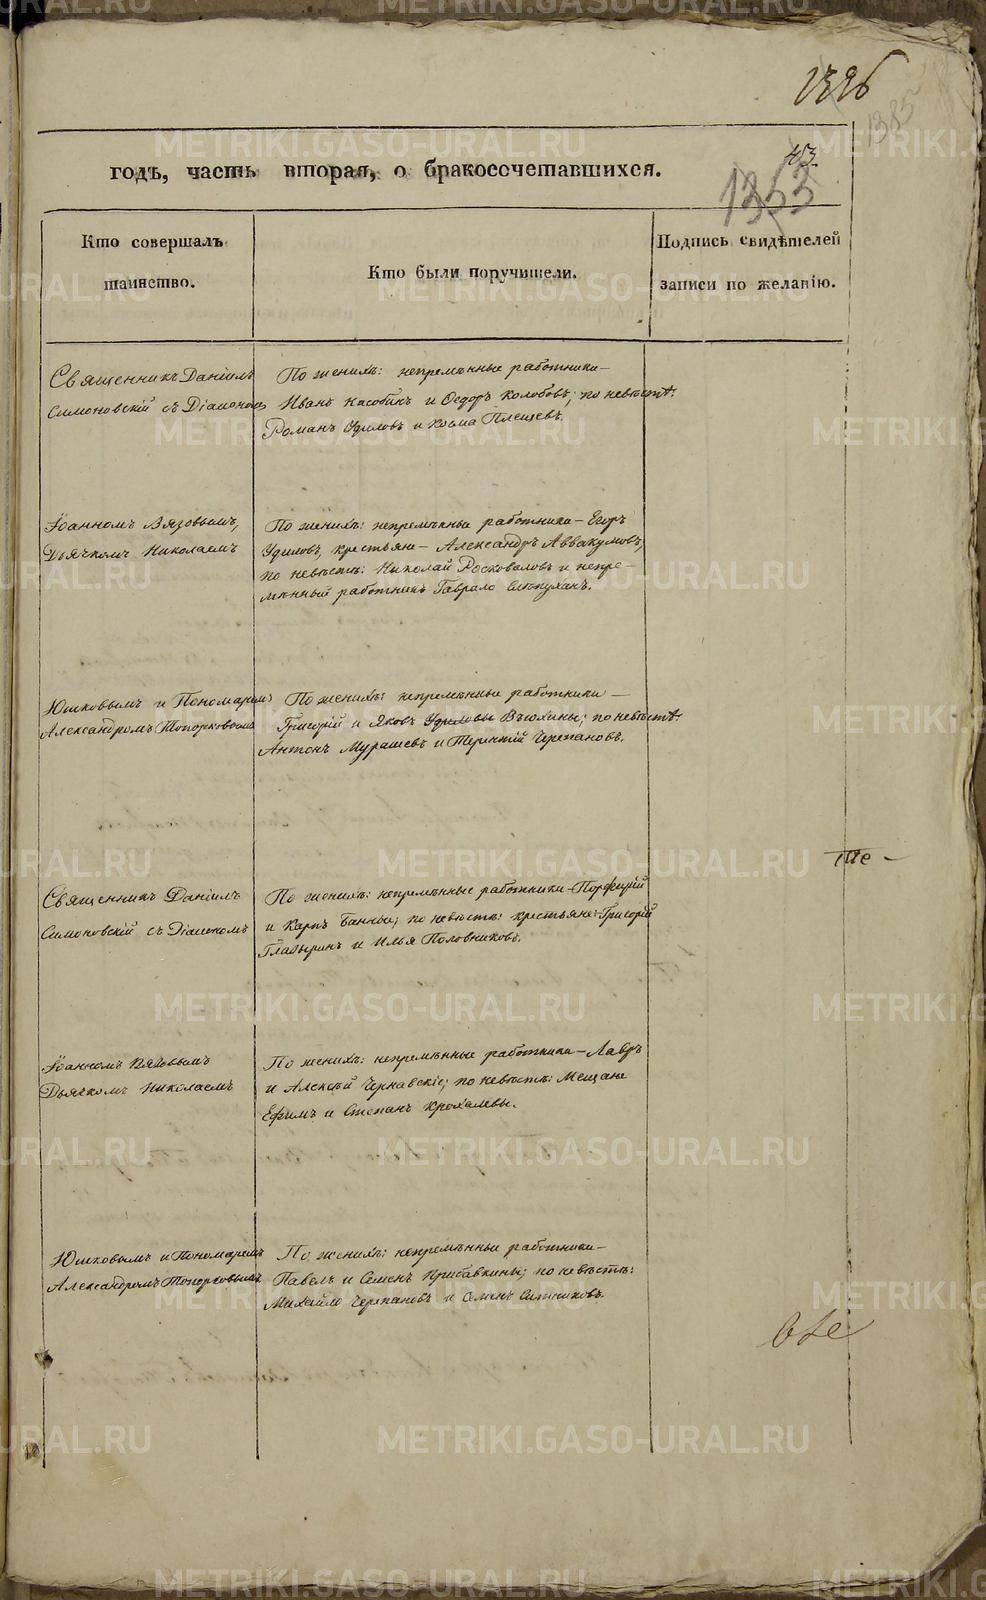 1396
1385
годъ, часть вторая, о бракосочетавшихся.
43.
1353
Кто совершалъ
таинство.
Кто были поручители.
Подпись свидѣтелей
записи по желанію.
Священникъ Даніилъ
Симоновскій съ Діакономъ
По женихѣ: непремѣнные работники –
Иванъ Касобинъ и Ѳедоръ Колобовъ; по невѣстѣ:
Романъ Удиловъ и Косма Плещевъ.
Іоанномъ Вязовымъ,
Дьячкомъ Николаемъ
По женихѣ: непремѣнные работники – Егоръ
Удиловъ, крестьяне – Александръ Аввакумовъ,
по невѣстѣ: Николай Росковаловъ и непре-
мѣнный работникъ Гаврило Слѣпухинъ.
Юшковымъ и Пономаремъ
Александромъ Топорковымъ
По женихѣ: непремѣнные работники –
Григорій и Яковъ Удиловы Вьюхины; по невѣстѣ:
Антонъ Мурашевъ и Терентій Черепановъ.
Священникъ Даніилъ
Симоновскій съ Діакономъ
По женихѣ: непремѣнные работники – Порфирій
и Карпъ Банны; по невѣстѣ: крестьяне – Григорій
Гладыринъ и Илья Половниковъ.
Іоанномъ Вязовымъ
Дьячкомъ Николаемъ
По женихѣ: непремѣнные работники – Лавръ
и Алексѣй Чернавскіе; по невѣстѣ: Мещане
Ефимъ и Степанъ Крохалевы.
Юшковымъ и Пономаремъ
Александромъ Топорковымъ
По женихѣ: непремѣнные работники –
Павелъ и Семенъ Прибавкины; по невѣстѣ:
Михайло Черепановъ и Семенъ Ситниковъ.
METRIKI.GASO-URAL.RU